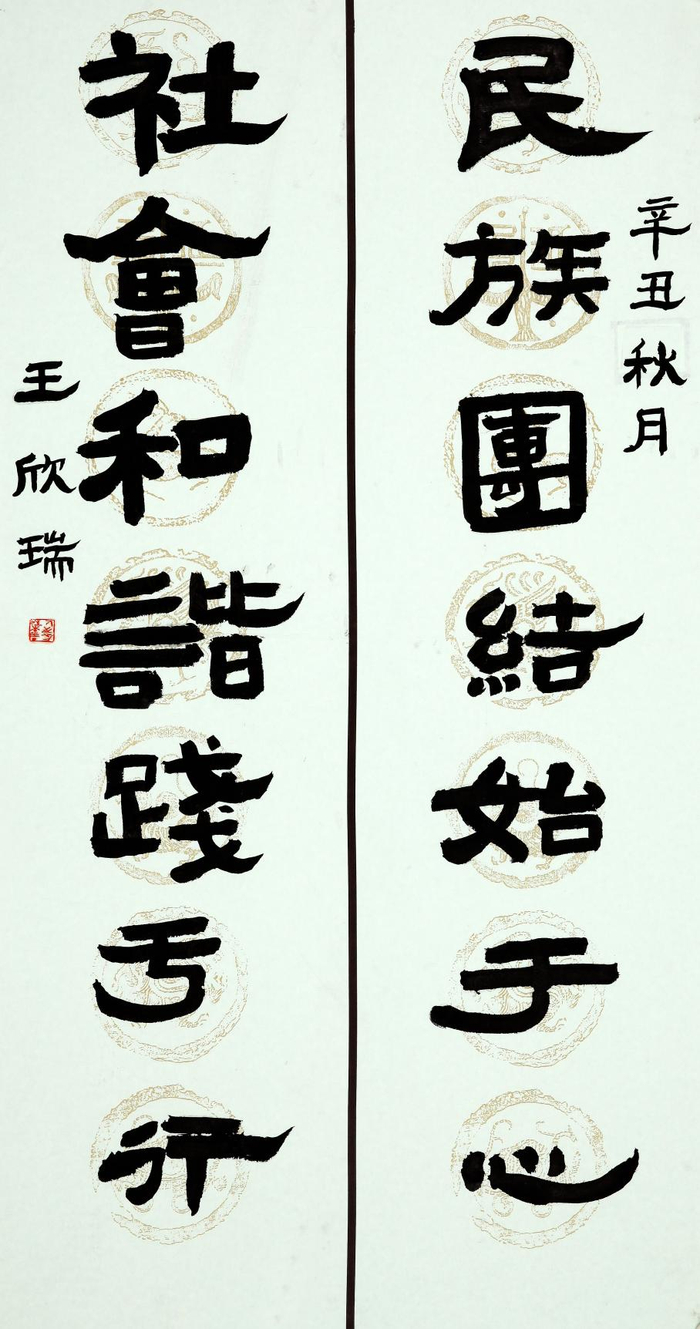 辛丑秋月
民族團結始于心
社會和諧踐亐行
王欣瑞